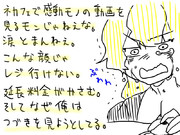 ネカフェで感動モノの動画を
見るモンじゃねぇな。
涙とまんねぇ。
こんな顔じゃ
レジ行けない。
延長料金がかさむ。
そしてなぜ俺は
つづきを見ようとしてる。